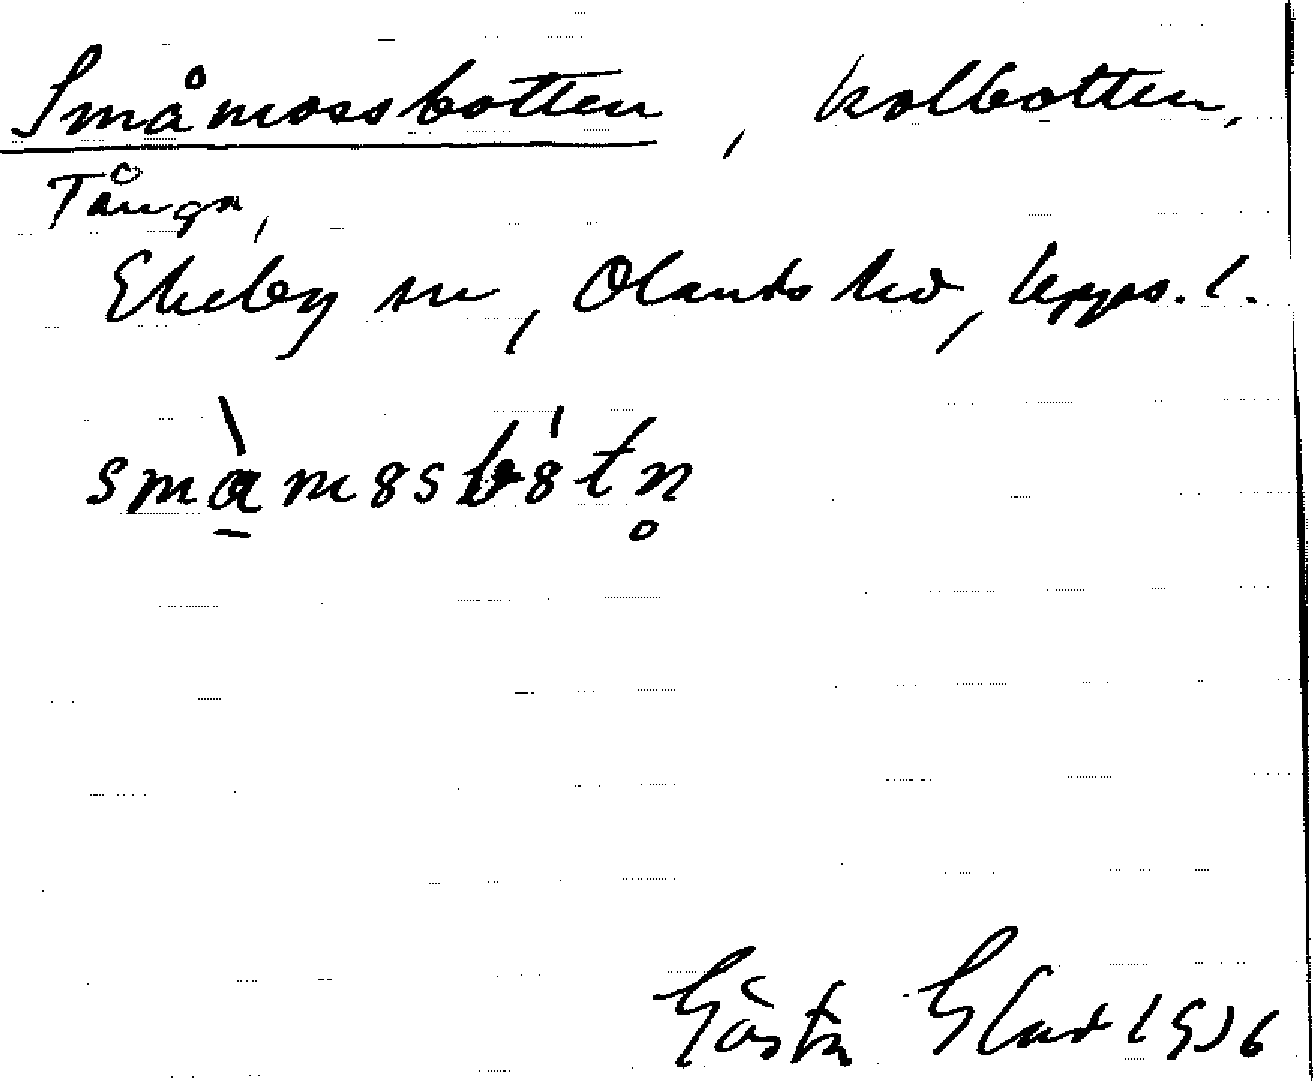 Småmossbotten, kolbotten,
Tånga,
Ekeby sn, Olands hd, Upps. l.
smàmȣsbȣ́tn̥
Gösta